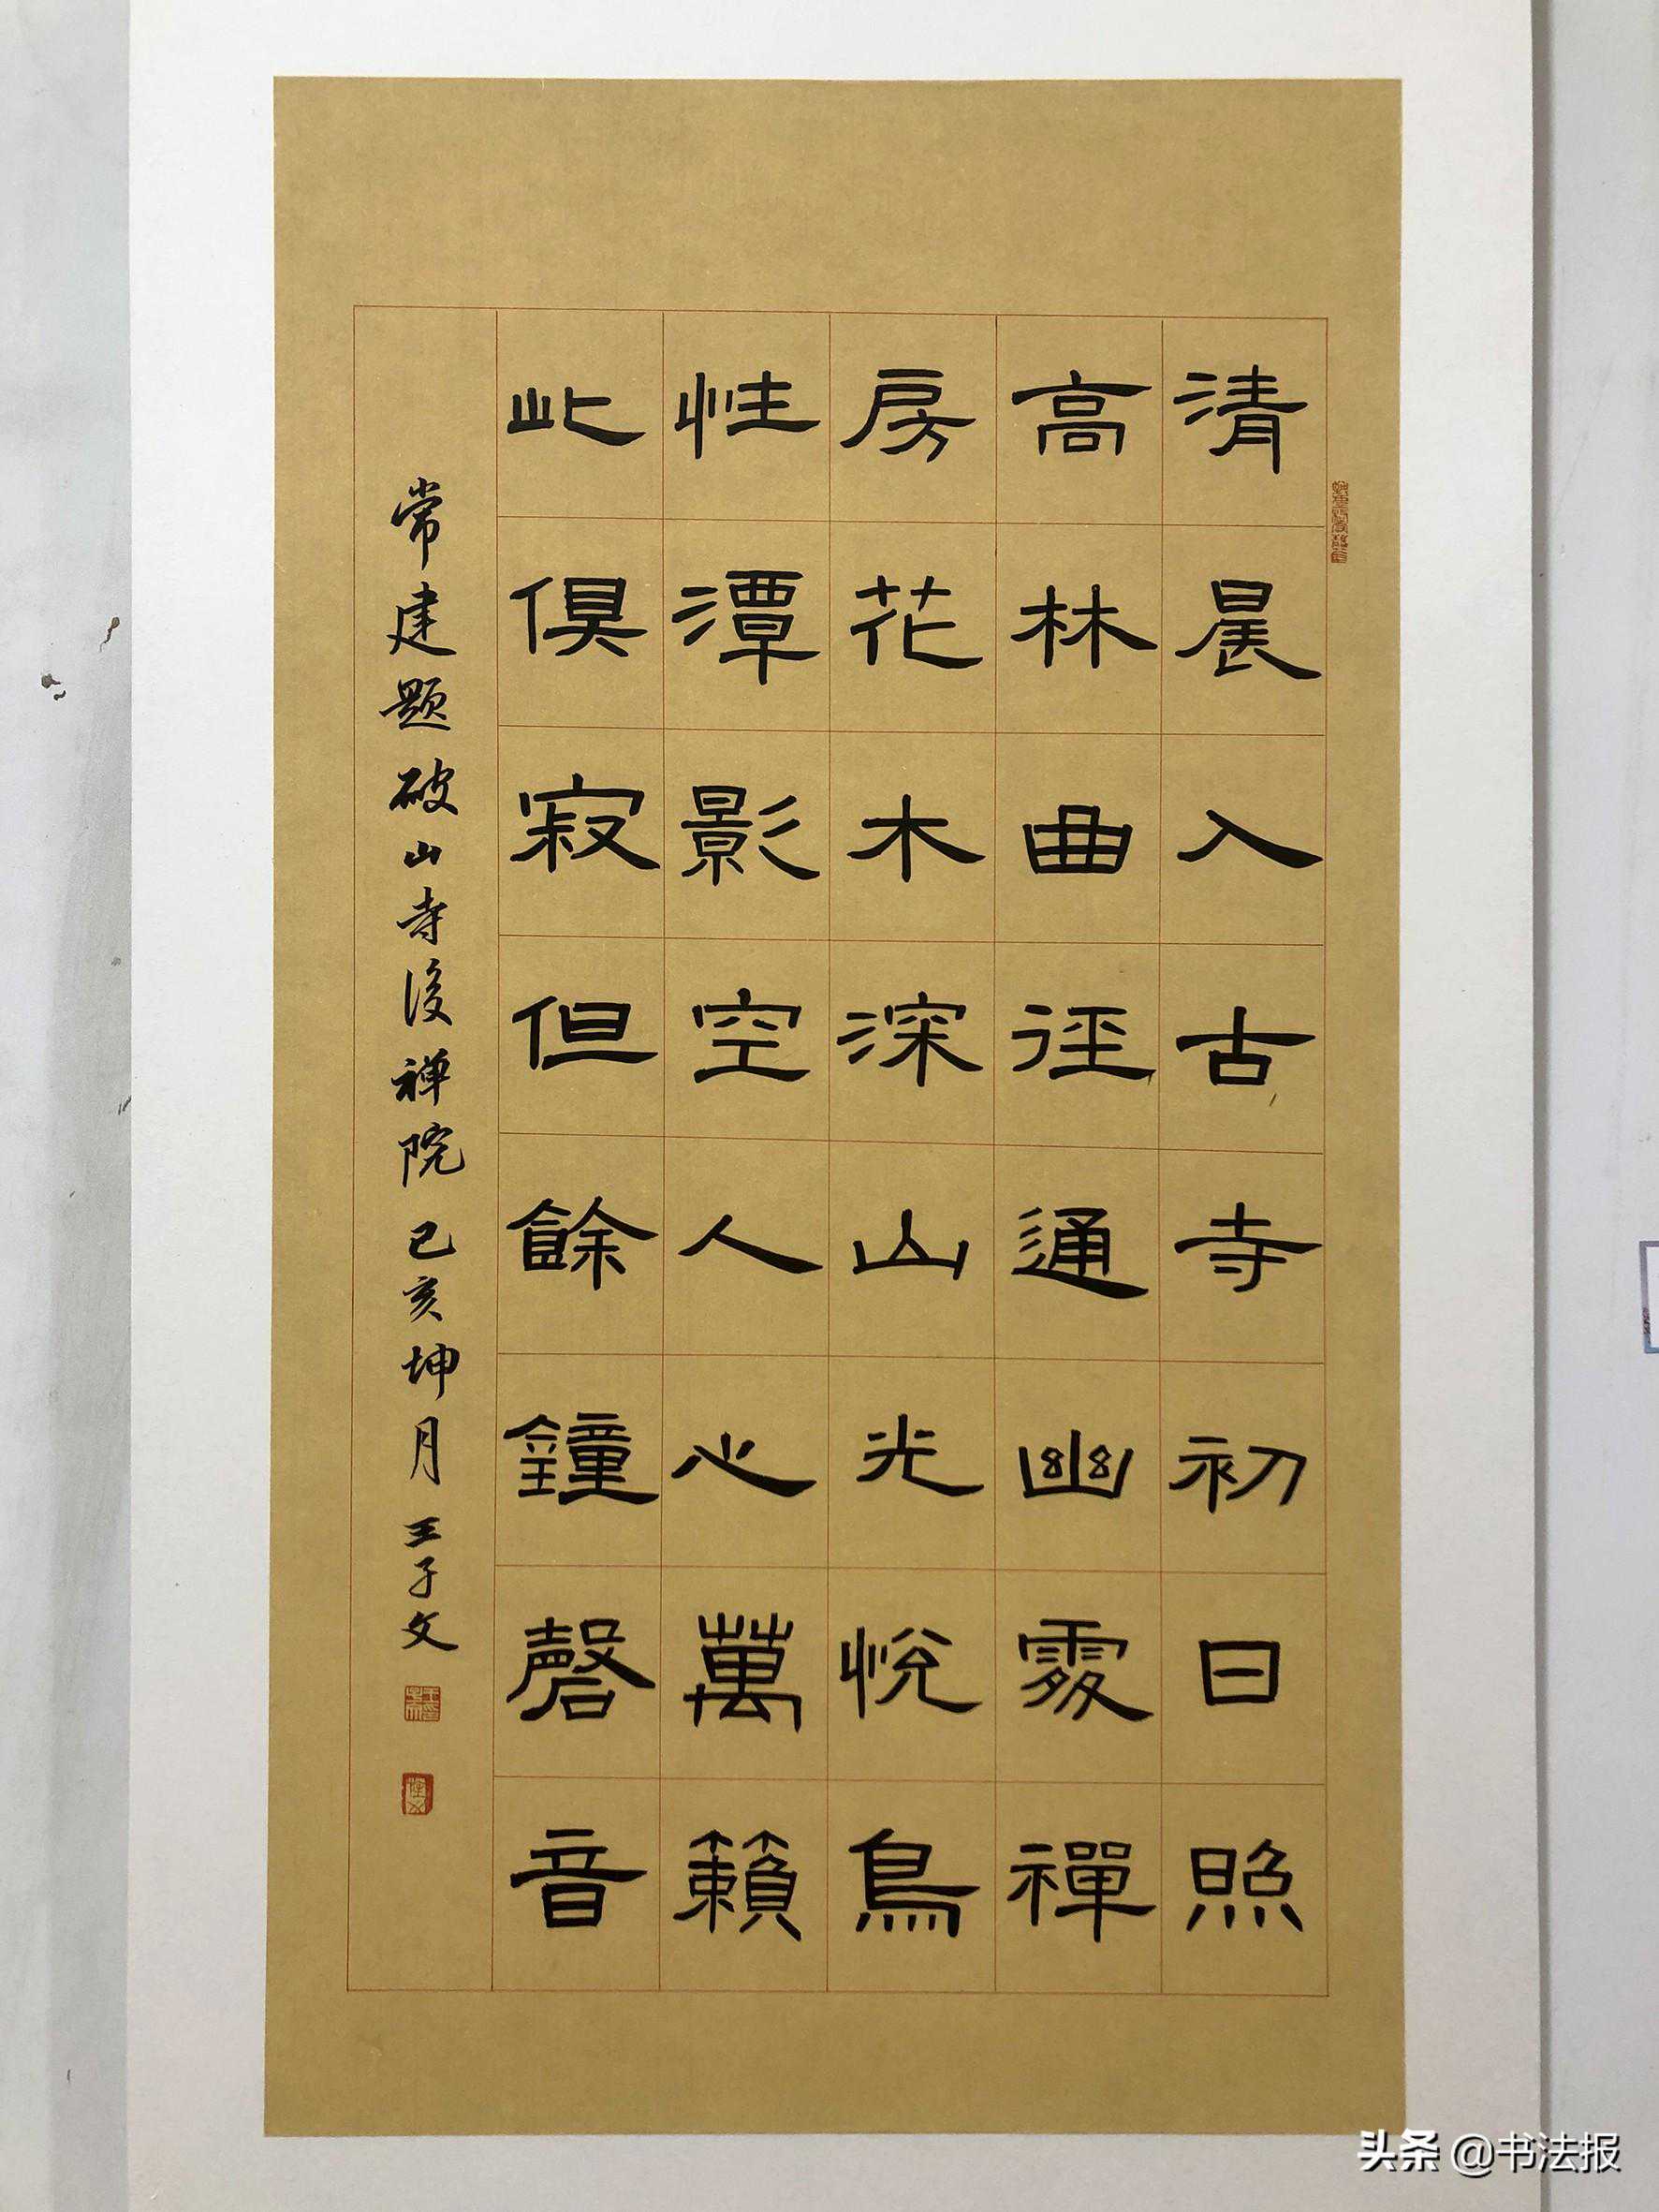 清晨入古寺初日照
高林曲徑通幽處禪
房花木深山光悅鳥
性潭影空人心萬籟
此俱寂但餘鐘磬音
常建题破山寺後禅院 己亥坤月 王子文
头条 @书法报